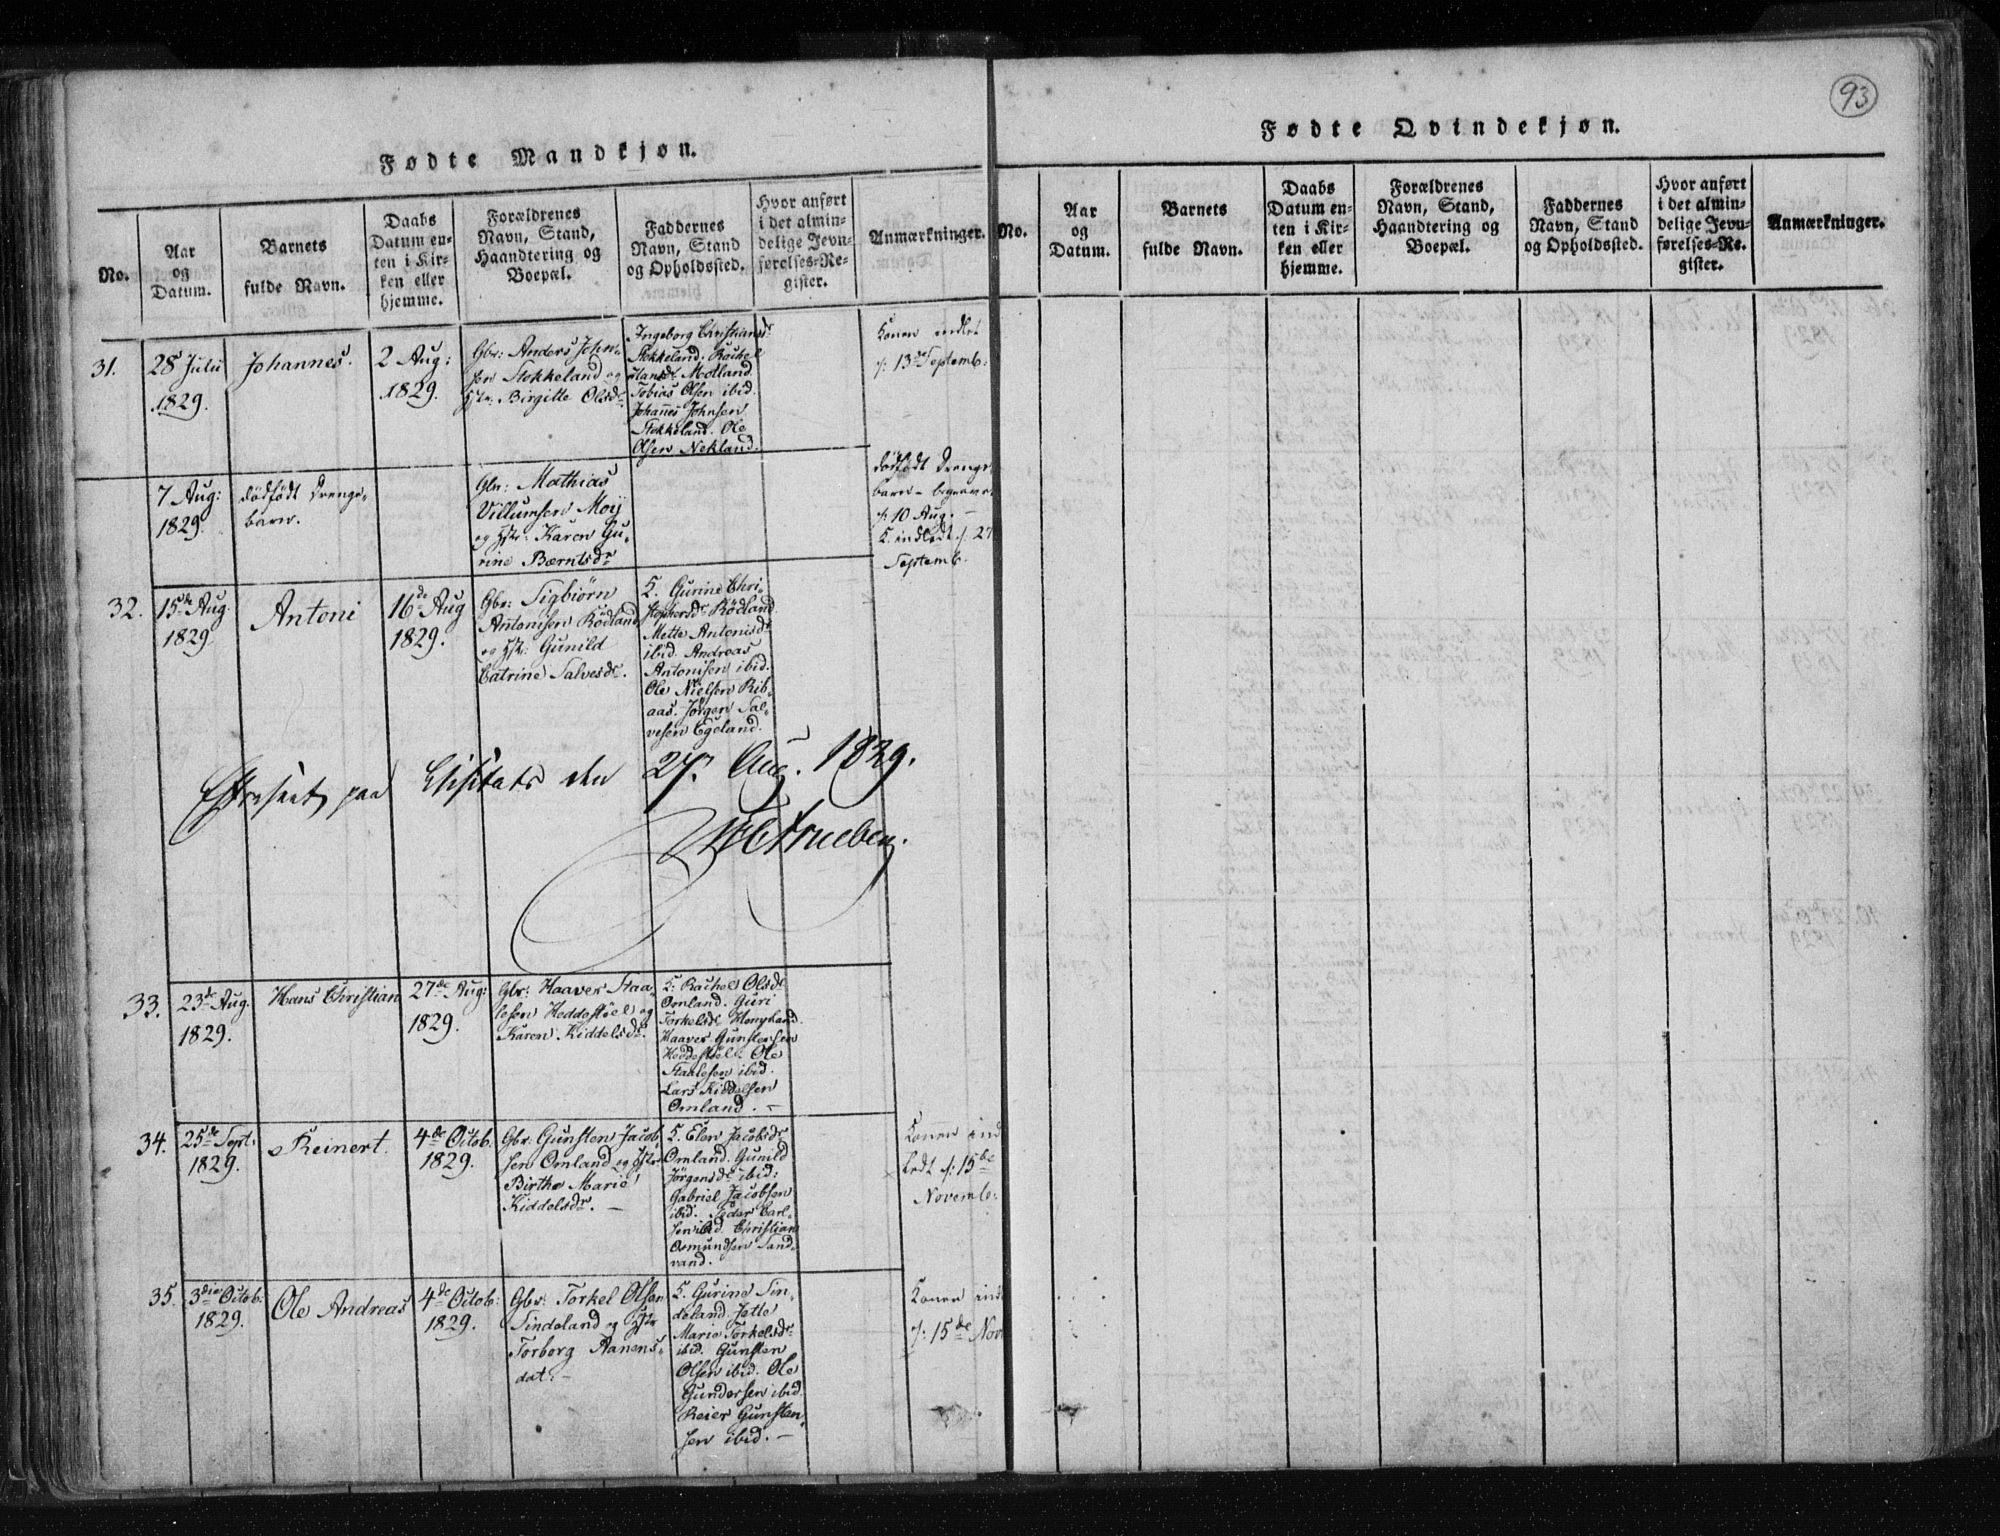 93
Fødte Mandkjøn.
No.
Aar
og
Datum.
Barnets
fulde Navn.
Daabs
Datum en-
ten i Kir-
ken eller
hjemme.
Forældrenes
Navn, Stand,
Haandtering og
Boepæl.
Faddernes
Navn, Stand
og Opholdssted.
Hvor anført
i det almin-
delige Jevn-
førelses-Re-
gister.
Anmærkninger.
31.
28 Julii
1829.
Johannes.
2 Aug:
1829.
Gbr: Anders John-
sen Stokkeland og
Hstr: Birgitte Olsdr
Ingeborg Christiansdr
Stokkeland. Rachel
Hansdr Motland.
Tobias Olsen ibid.
Johannes Johnsen
Stokkeland. Ole
Olsen Nekland.
Konen indlet
/: 13de Septemb:
7 Aug:
1829.
dødfödt Drenge-
barn.
Gbr: Mathias
Villumsen Moij
og Hstr: Karen Gu-
rine Bærntsdr
dødfödt Drenge-
barn - begravet
/: 10 Aug. -
K. indledt /. 27
Septemb.
32.
15de Aug.
1829.
Antoni
16de Aug
1829.
Gbr: Sigbiørn
Antonisen Rödland
og Hstr: Gunild
Catrine Salvesdr.
K. Gurine Chri-
stophersdr Rödland
Mette Antonisdr
ibid. Andreas
Antonisen ibid.
Ole Nielsen Rib-
aas. Jörgen Sal-
vesen Egeland.
Efterseet paa Visitats den 27. Aug. 1829.
33.
23de Aug.
1829.
Hans Christian
27de Aug:
1829.
Gbr: Haaver Staa-
lesen Heddestöel og
Karen Kiddelsdr.
K: Rachel Olsdr
Omland. Guri
Torkelsdr
Haaver Gunstensen
Heddestöel. Ole
Staalesen ibid.
Lars Kiddelsen
Omland. -
34.
25de Sept:
1829.
Reinert.
4de Octob.
1829.
Gbr: Gunsten Jacob-
sen Omland og Hstr
Birthe Marie
Kiddelsdr. -
K. Elen Jacobsdr
Omland. Gunild
Jörgensdr ibid:
Gabriel Jacobsen
ibid. Peder Carl-
sen ibid. Christian
Osmundsen Sand-
vand.
Konen ind
ledt /: 15de
Novemb:
35.
3die Octob:
1829.
Ole Andreas
4de Octob:
1829.
Gbr: Torkel Olsen
Sindeland og Hstr
Torborg Aanens-
dat: -
K. Gurine Sin-
deland Jette
Marie Torkelsdr
ibid. Gunsten
Olsen ibid. Ole
Gundersen ibid.
Reier Gunsten-
sen ibid. -
Konen ind
/: 15de Nov
Fødte Qvindekjøn.
No.
Aar
og
Datum.
Barnets
fulde Navn.
Daabs
Datum en-
ten i Kir-
ken eller
hjemme.
Forældrenes
Navn, Stand,
Haandtering og
Boepæl.
Faddernes
Navn, Stand
og Opholdssted.
Hvor anført
i det almin-
delige Jevn-
førelses-Re-
gister.
Anmærkninger.